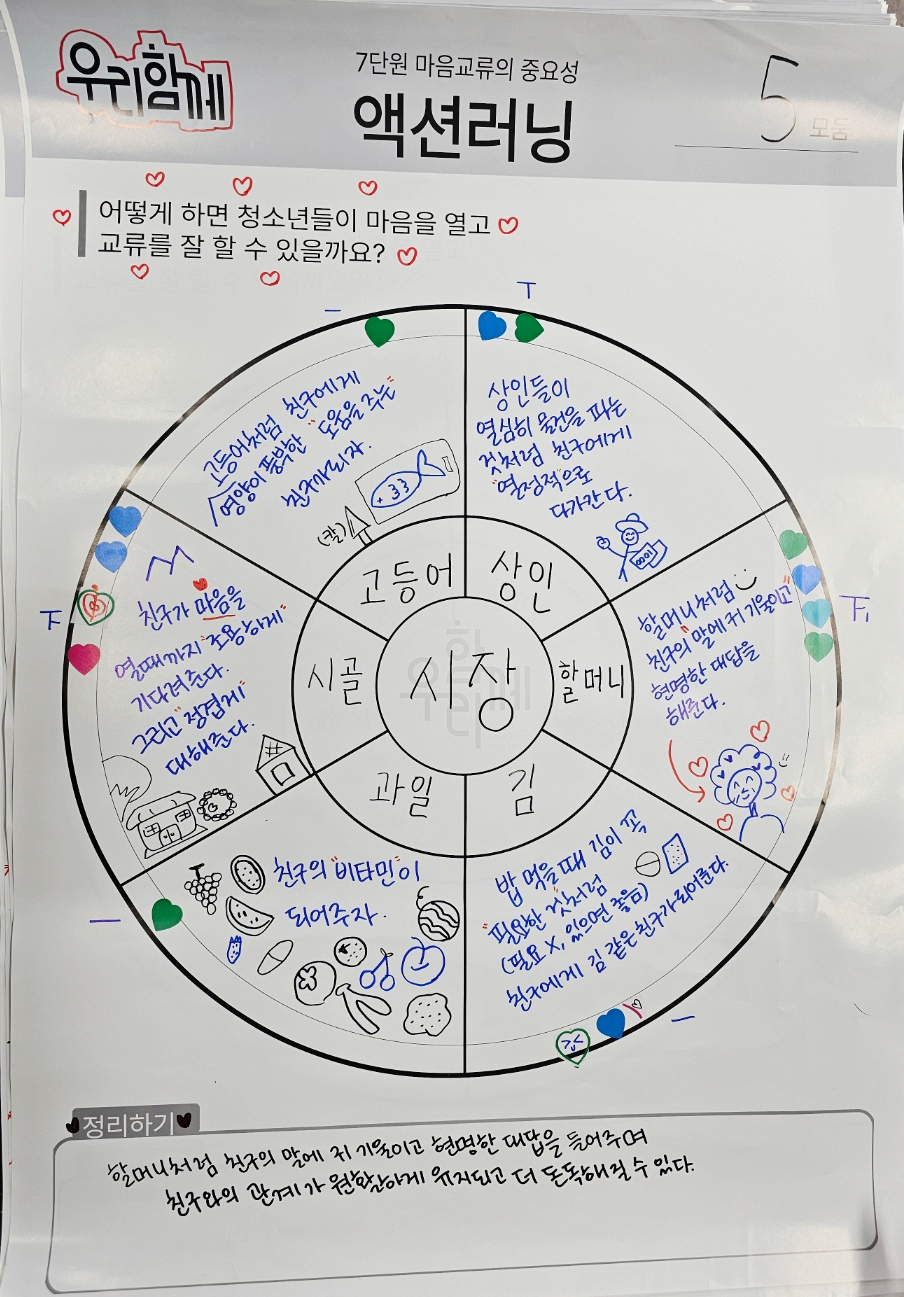 우리함께
7단원 마음교류의 중요성
액션러닝
5 모둠
어떻게 하면 청소년들이 마음을 열고
교류를 잘 할 수 있을까요?
고등어처럼 친구에게
영양이 풍부한 "도움을 주는"
친구가 되자.
(칼)
고등어
상인들이
열심히 물건을 파는
것처럼 친구에게
"열정적"으로
다가간다.
상인
할머니처럼
친구의 "말에 귀 기울이고"
현명한 대답을
해준다.
할머니
밥 먹을 때 김이 꼭
"필요한 것"처럼
(필요 X, 있으면 좋음)
친구에게 김 같은 친구가 되어준다.
김
친구의 "비타민"이
되어주자.
과일
친구가 마음을
열때까지 "조용하게"
기다려준다.
그리고 "정겹게"
대해준다.
시골
시장
정리하기
할머니처럼 친구의 말에 귀 기울이고 현명한 대답을 들어주며
친구와의 관계가 원활하게 유지되고 더 돈독해질 수 있다.